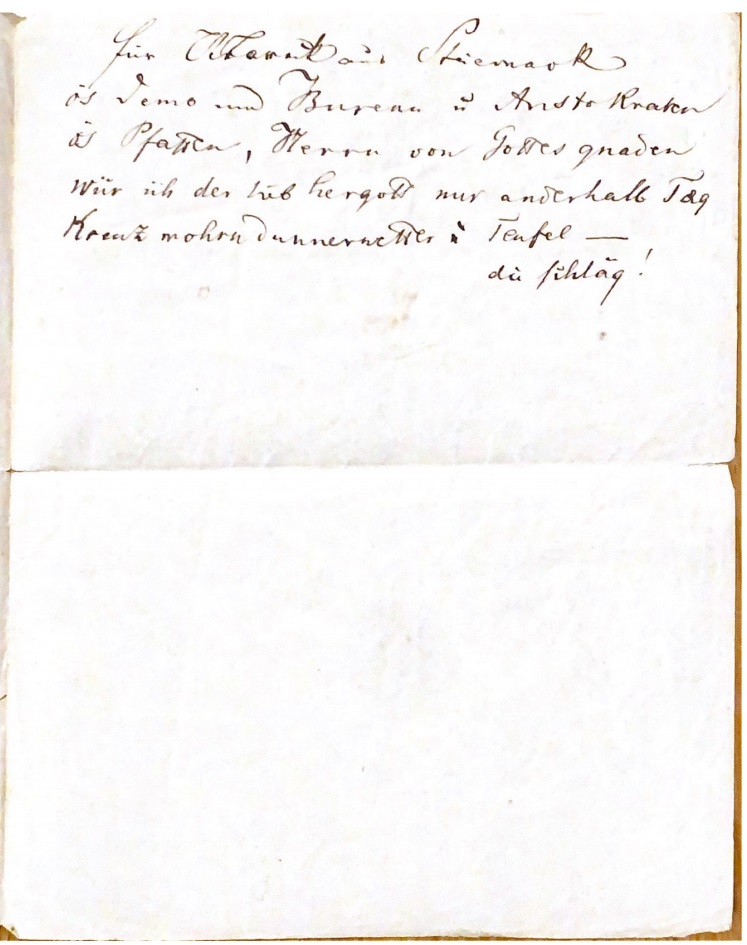 für aus Steiermark
ös Demo und Bureau u Aristokraten
ös Pfaffen, Herrn von Gottes gnaden
wür ich der lieb hergott nur anderhalb Täg
Kreuz mohrn dunnerwetter u Teufel —
dü schläg!